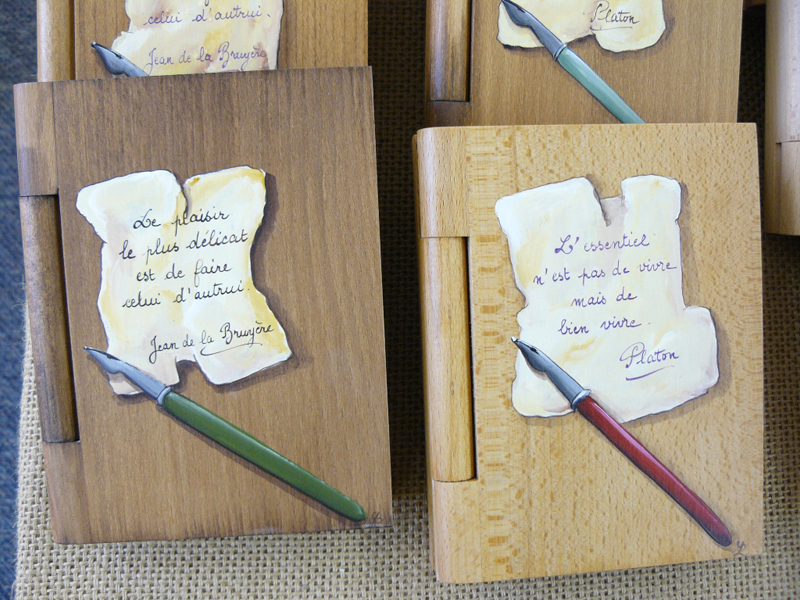 celui d'autrui.
Jean de la Bruyère
Platon
Le plaisir
le plus délicat
est de faire
celui d'autrui.
Jean de la Bruyère
L'essentiel
n'est pas de vivre
mais de
bien vivre.
Platon